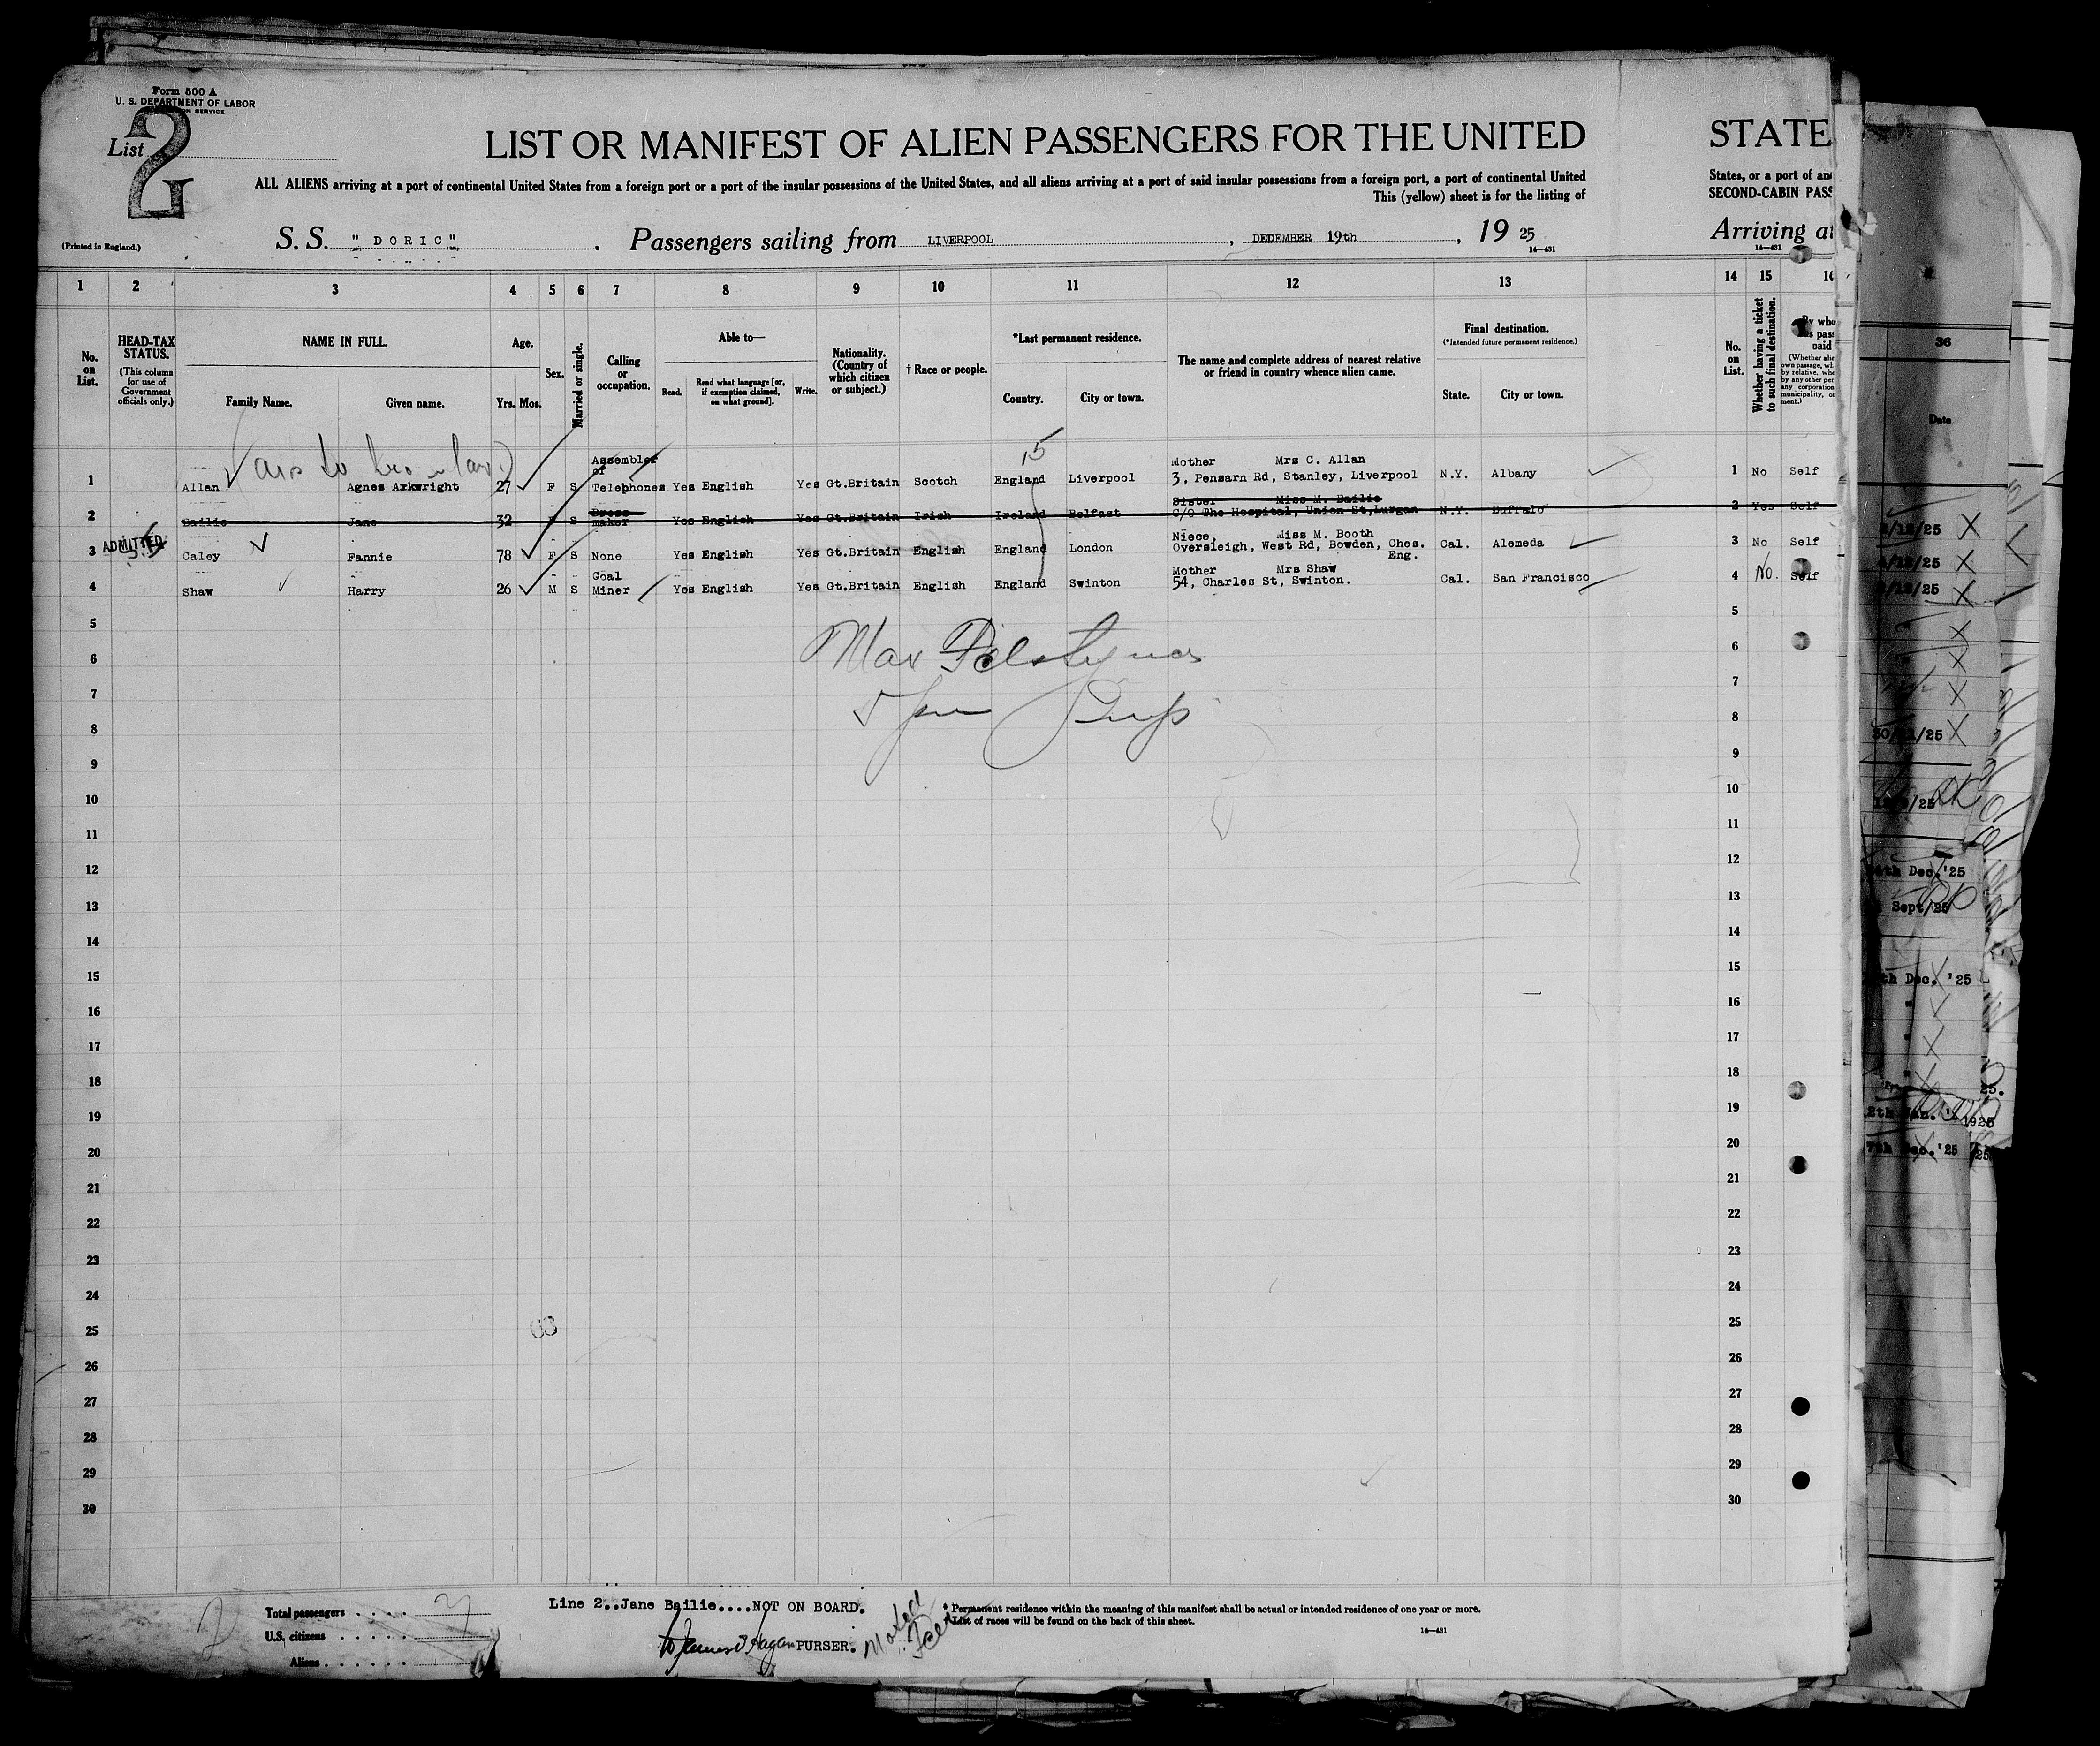 Form 500 A
U. S. DEPARTMENT OF LABOR
List 2
(Printed in England.)
LIST OR MANIFEST OF ALIEN PASSENGERS FOR THE UNITED STATE
ALL ALIENS arriving at a port of continental United States from a foreign port or a port of the insular possessions of the United States, and all aliens arriving at a port of said insular possessions from a foreign port, a port of continental United States, or a port of
This (yellow) sheet is for the listing of SECOND-CABIN PASS
S. S. "DORIC". Passengers sailing from LIVERPOOL, DEDEMBER 19th, 19 25 Arriving at
14—431 14—431
1 2 3 4 5 6 7 8 9 10 11 12 13 14 15
No. on List.
HEAD-TAX STATUS. (This column for use of Government officials only.)
NAME IN FULL. Family Name. Given name.
Age. Yrs. Mos.
Sex.
Married or single.
Calling or occupation.
Able to— Read. Read what language [or, if exemption claimed, on what ground]. Write.
Nationality. (Country of which citizen or subject.)
† Race or people.
*Last permanent residence. Country. City or town.
The name and complete address of nearest relative or friend in country whence alien came.
Final destination. (*Intended future permanent residence.) State. City or town.
No. on List.
Whether having a ticket to such final destination.
36
Date
15
1 Allan Agnes Arkwright 27 F S Assembler of Telephones Yes English Yes Gt.Britain Scotch England Liverpool Mother Mrs C. Allan 3, Pensarn Rd, Stanley, Liverpool N.Y. Albany 1 No Self
2 Bailie Jane 32 F S Dress maker Yes English Yes Gt.Britain Irish Ireland Belfast Sister Miss M. Bailie C/O The Hospital, Union St,Lurgan N.Y. Buffalo 2 Yes Self
ADMITTED
3 Caley Fannie 78 F S None Yes English Yes Gt.Britain English England London Niece, Miss M. Booth Oversleigh, West Rd, Bowden, Ches. Eng. Cal. Alemeda 3 No Self
4 Shaw Harry 26 M S Goal Miner Yes English Yes Gt.Britain English England Swinton Mother Mrs Shaw 54, Charles St, Swinton. Cal. San Francisco 4 No. Self
5 5
6 6
7 7
8 8
9 9
10 10
11 11
12 12
13 13
14 14
15 15
16 16
17 17
18 18
19 19
20 20
21 21
22 22
23 23
24 24
25 25
26 26
27 27
28 28
29 29
30 30
Total passengers
U.S. citizens
Aliens
Line 2..Jane Bailie....NOT ON BOARD.
PURSER.
* Permanent residence within the meaning of this manifest shall be actual or intended residence of one year or more.
† List of races will be found on the back of this sheet.
14—431